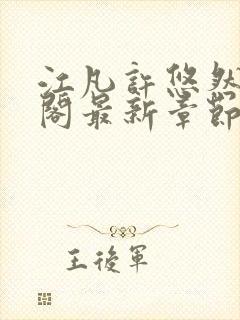 江凡許悠然
閣最新章節
王後軍